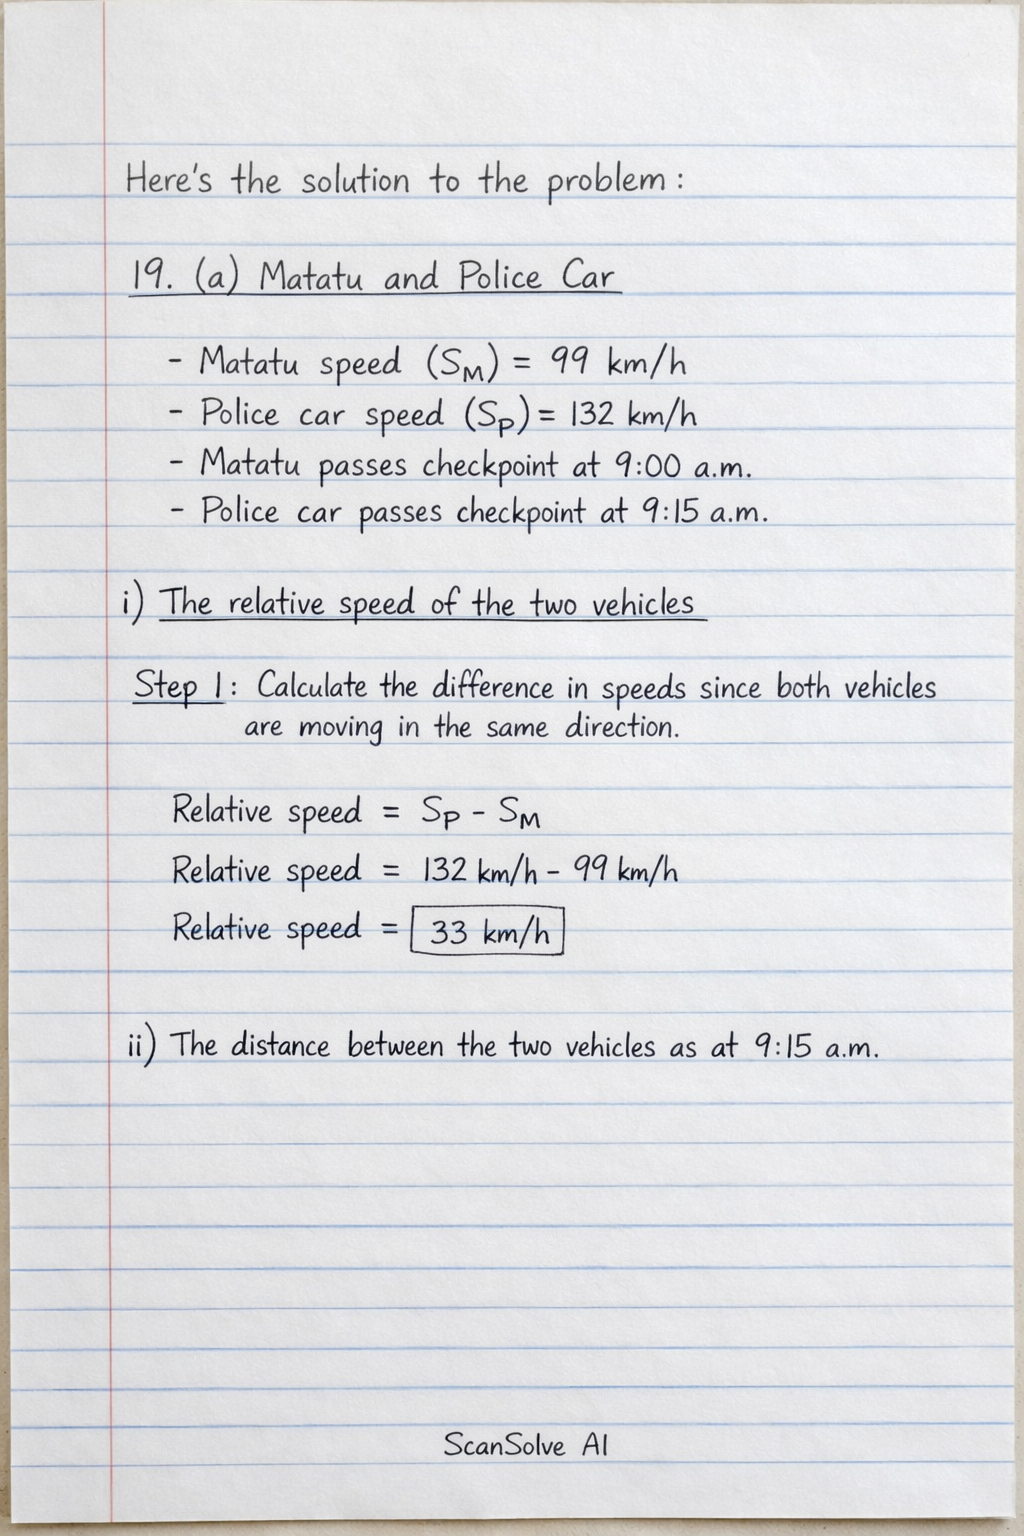 Here's the solution to the problem :
19. (a) Matatu and Police Car
- Matatu speed (S_M) = 99 km/h
- Police car speed (S_P) = 132 km/h
- Matatu passes checkpoint at 9:00 a.m.
- Police car passes checkpoint at 9:15 a.m.
i) The relative speed of the two vehicles
Step 1: Calculate the difference in speeds since both vehicles
are moving in the same direction.
Relative speed = S_P - S_M
Relative speed = 132 km/h - 99 km/h
Relative speed = 33 km/h
ii) The distance between the two vehicles as at 9:15 a.m.
ScanSolve AI